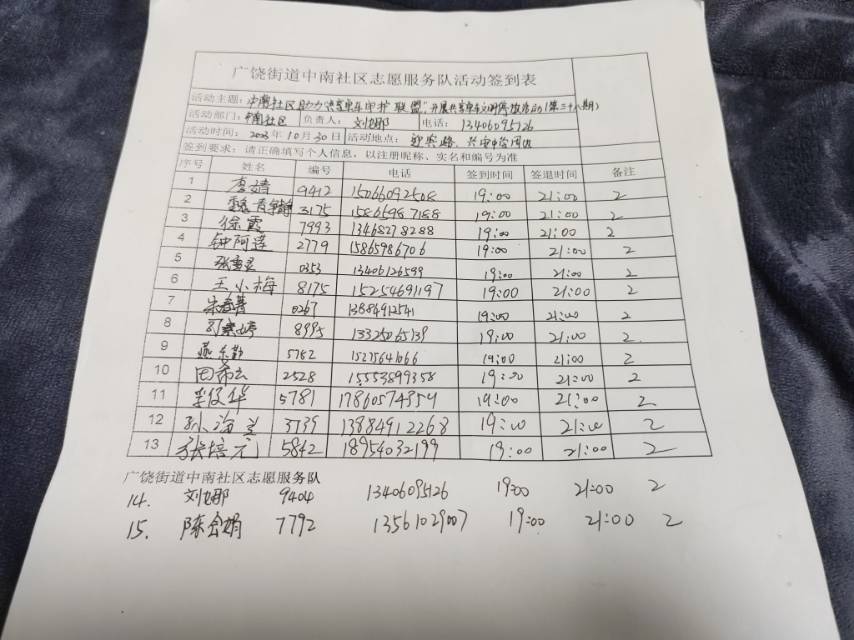 广饶街道中南社区志愿服务队活动签到表
活动主题: 中南社区助力"共享单车守护联盟",开展共享单车文明停放活动(第二十八期)
活动部门: 中南社区 负责人: 刘娜 电话: 13406095126
活动时间: 2023年10月30日 活动地点: 迎宾路、兴安中学周边
签到要求: 请正确填写个人信息,以注册昵称、实名和编号为准
序号 姓名 编号 电话 签到时间 签退时间 备注
1 李婧 9412 15066092508 19:00 21:00 2
2 3175 15865987188 19:00 21:00 2
3 徐霞 7993 13468278288 19:00 21:00 2
4 钟阿萍 2779 15865986706 19:00 21:00 2
5 0353 13406126599 19:00 21:00 2
6 王小梅 8175 15254691197 19:00 21:00 2
7 0267 13884912541 19:00 21:00 2
8 8995 13325065139 19:00 21:00 2
9 5762 15275641666 19:00 21:00 2
10 2528 15553899358 19:00 21:00 2
11 李俊华 5781 17860574854 19:00 21:00 2
12 孙海兰 3739 13884912268 19:00 21:00 2
13 张培元 5842 18954032199 19:00 21:00 2
广饶街道中南社区志愿服务队
14. 刘娜 9404 13406095126 19:00 21:00 2
15. 陈会娟 7792 13561029007 19:00 21:00 2